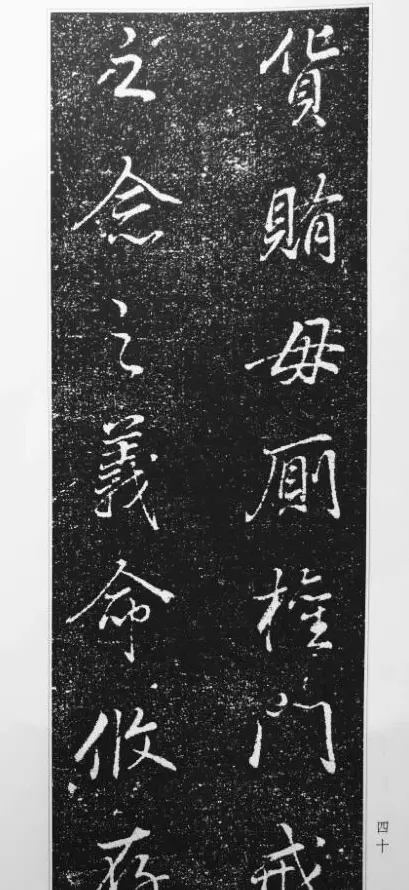 貨賄毋厠權門戒
之念之義命攸存
四十